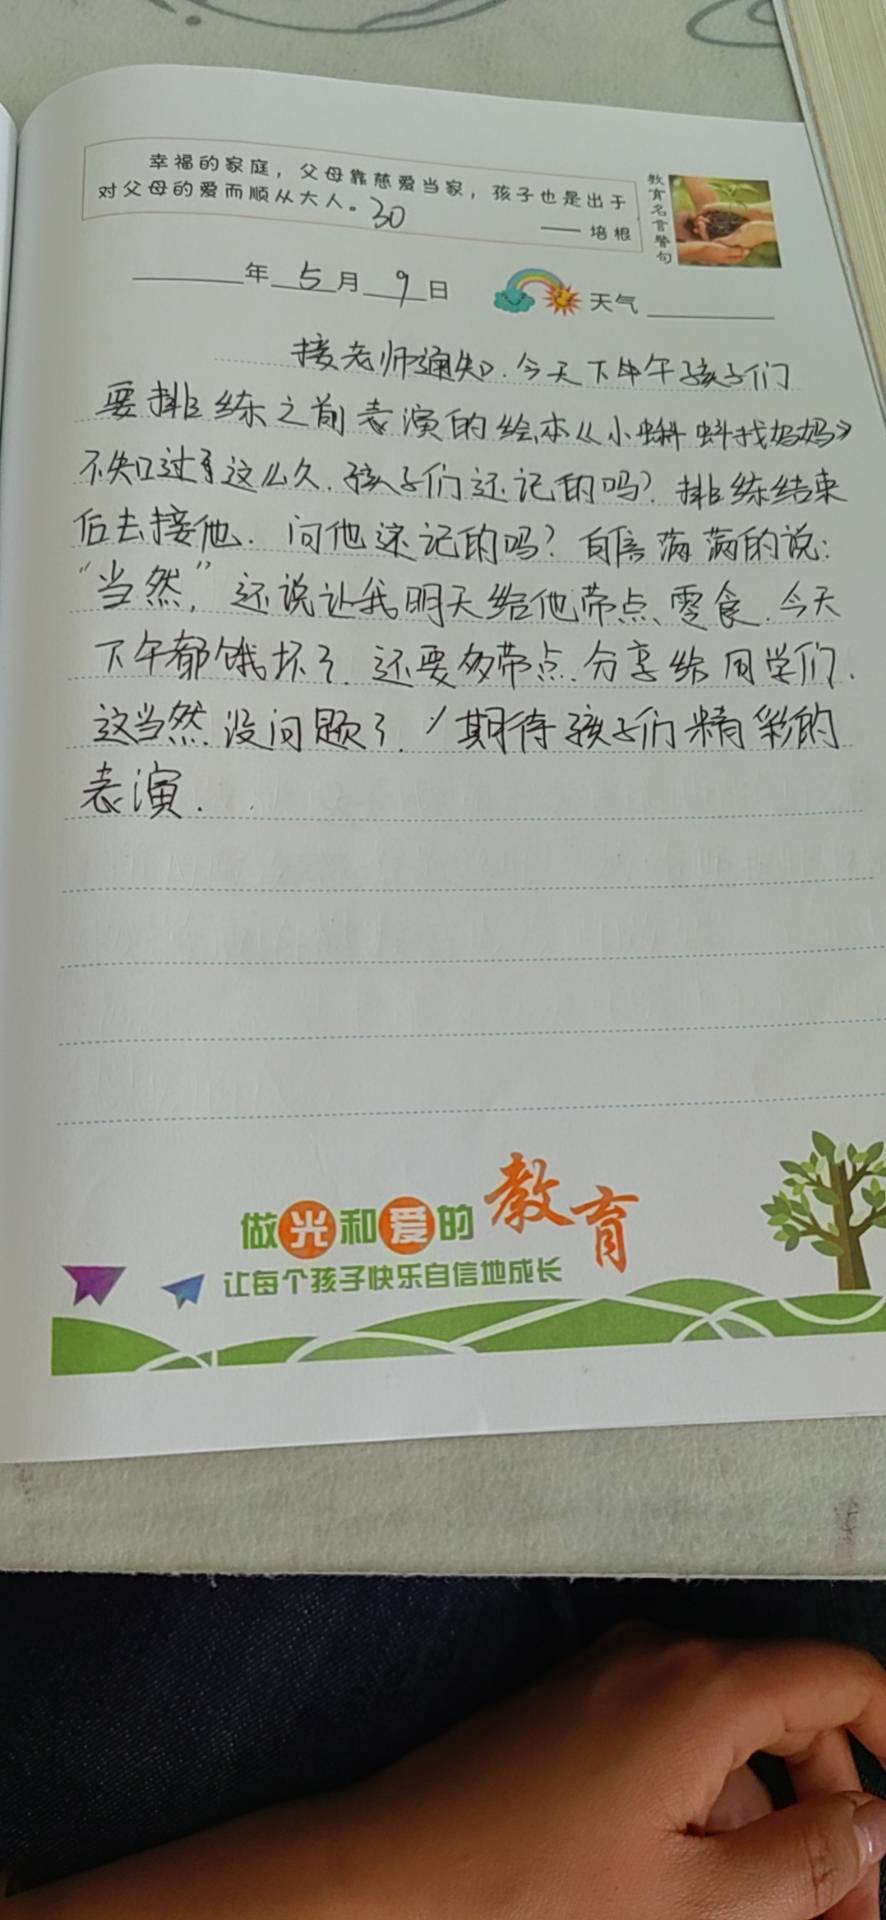 幸福的家庭，父母靠慈爱当家，孩子也是出于
对父母的爱而顺从大人。30
—— 培根
教育名言警句
年 5 月 9 日
天气
接老师通知.今天下午孩子们
要排练之前表演的绘本《小蝌蚪找妈妈》
不知过了这么久.孩子们还记的吗？排练结束
后去接他.问他还记的吗？自信满满的说：
“当然，”还说让我明天给他带点零食.今天
下午都饿坏了.还要多带点.分享给同学们.
这当然没问题了.期待孩子们精彩的
表演.
做光和爱的教育
让每个孩子快乐自信地成长